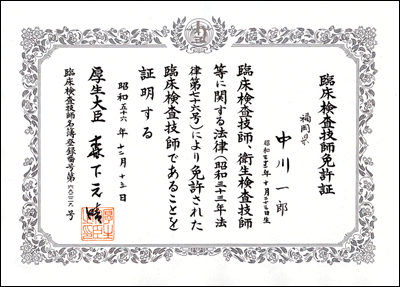 臨床検査技師免許証
福岡県
中川一郎
臨床検査技師、衛生検査技師
等に関する法律(昭和三十三年法
律第七十六号)により免許された
臨床検査技師であることを
証明する
昭和五十六年十二月十五日
厚生大臣 森下元晴
臨床検査技師名簿登録番号第
号